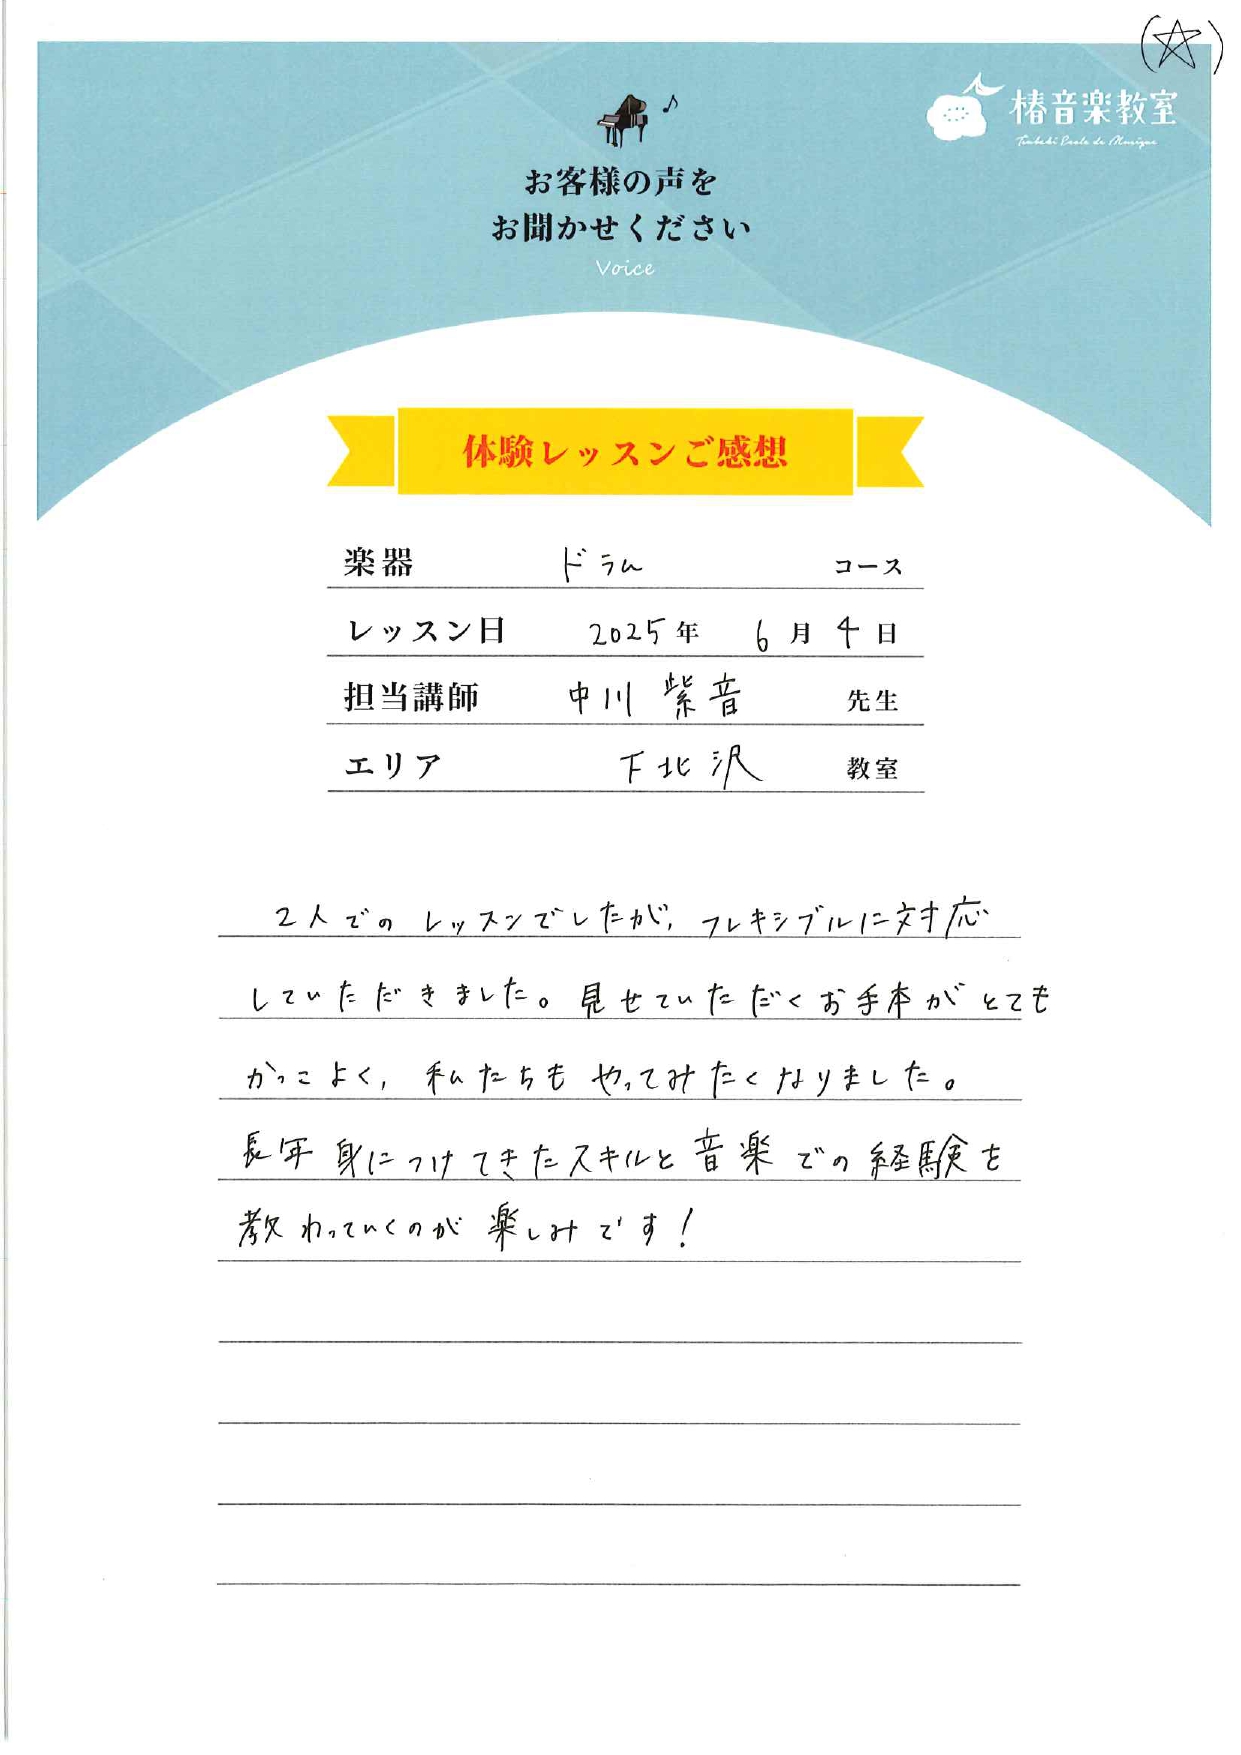 (☆)
椿音楽教室
Tsubaki Ecole de Musique
お客様の声を
お聞かせください
Voice
体験レッスンご感想
楽器 ドラム コース
レッスン日 2025年 6月4日
担当講師 中川 紫音 先生
エリア 下北沢 教室
2人でのレッスンでしたが, フレキシブルに対応
していただきました。見せていただくお手本がとても
かっこよく, 私たちもやってみたくなりました。
長年身につけてきたスキルと音楽での経験を
教わっていくのが楽しみです!